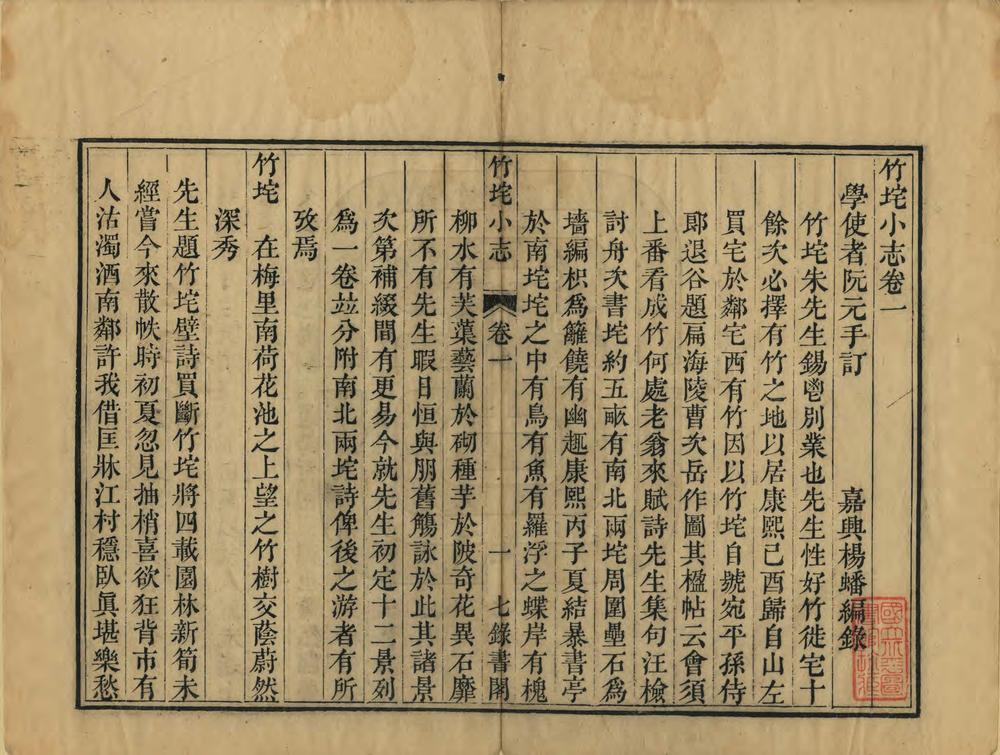 竹垞小志卷一
學使者阮元手訂　嘉興楊蟠編錄
竹垞朱先生錫鬯別業也先生性好竹徙宅十
餘次必擇有竹之地以居康熙己酉歸自山左
買宅於鄰宅西有竹因以竹垞自號宛平孫侍
郎退谷題扁海陵曹次岳作圖其楹帖云會須
上番看成竹何處老翁來賦詩先生集句汪檢
討舟次書垞約五畞有南北兩垞周圍壘石為
墻編枳爲籬饒有幽趣康熙丙子夏結暴書亭
於南垞垞之中有鳥有魚有羅浮之蝶岸有槐
竹垞小志　卷一　一　七錄書閣
柳水有芙蕖藝蘭於砌種芋於陂奇花異石靡
所不有先生暇日恒與朋舊觴詠於此其諸景
次第補綴間有更易今就先生初定十二景列
爲一卷竝分附南北兩垞詩俾後之游者有所
攷焉
竹垞　在梅里南荷花池之上望之竹樹交蔭蔚然
深秀
先生題竹垞壁詩買斷竹垞將四載園林新筍未
經嘗今來散帙時初夏忽見抽梢喜欲狂背市有
人沽濁酒南鄰許我借匡牀江村穩臥眞堪樂愁